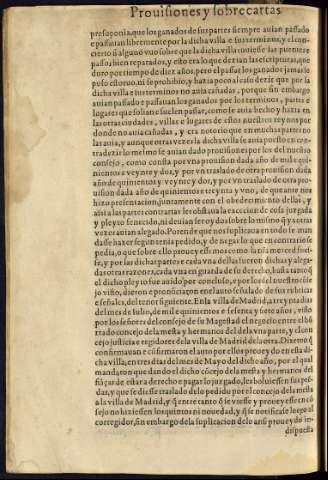 Prouisiones y sobrecartas
presoponia, que los ganados de sus partes siempre auian passado
e passauan libremente por la dicha villa e sus terminos, y el con-
cierto si alguno vuo sobre que la dicha villa tuuiesse las puentes y
passos bien reparados, y esto era lo que dezian las escripturas, que
duro por tiempo de diez años, pero el passar los ganados jamas lo
puso estoruo, ni se prohibio, y hazia poco al caso dezir que por la
dicha villa e sus terminos no auia cañadas, porque sin embargo
auian passado e passauan los ganados por los terminos, partes e
lugares que solian e suelen passar, como se auia hecho y hazia en
las otras ciudades, villas e lugares de estos nuestros reynos por
donde no auia cañadas, y era notorio que en muchas partes no
las auia, y aunque otra vez en la dicha villa se auia puesto en con-
tradezir lo mesmo se auian dado prouisiones por los del nuestro
consejo, como consta por vna prouision dada año de mil e qui-
nientos e veynte y dos, y por vn traslado de otra prouision dada
año de quinientos y veynte y dos, y por vn traslado de otra pro-
uision dada año de quinientos e treynta y vno, de que ante nos
hizo presentacion, juntamente con el obedecimiento dellas, y
assi a las partes contrarias les obstaua la excepcion de cosa juzgada
y pleyto fenecido, ni deuian ser oydas sobre lo mismo que otras
vezes auian alegado. Porende que nos suplicaua en todo le man-
dasse hazer segun tenia pedido, y denegar lo que en contrario se
pedia, o que sobre ello proueyessemos como la nuestra merced fues-
se, y por las dichas partes e cada vna dellas fueron dichas y alega-
das otras razones, cada vna en guarda de su derecho, hasta tanto que
el dicho pleyto fue auido por concluso, e por los del nuestro conse-
jo visto, dieron e pronunciaron en el auto señalado de sus rubricas
e señales, del tenor siguiente. En la villa de Madrid, a treynta dias
del mes de Iulio, de mil e quinientos e sesenta y siete años, visto
por los señores del consejo de su Magestad el negocio entre el hõ-
rrado concejo dela mesta y hermanos del dela vna parte, y el con-
cejo justicia e regidores dela villa de Madrid dela otra. Dixeron que
confirmauan e confirmaron el auto por ellos proueydo en esta di-
cha villa, en tres dias del mes de Mayo del dicho año, por el qual
mandaron que dando el dicho cõcejo dela mesta y hermanos del
fiãças de estar a derecho e pagar lo juzgado, les boluiessen sus pren-
das, y que se diesse traslado delo pedido por el concejo dela mesta
a la villa de Madrid, y que entre tanto que se viesse y proueyesse en cõ-
sejo no hiziessen los quintos ni nouedad, y que se notificasse lo rso al
corregidor, sin embargo dela suplicacion delo ansi proueydo in-
dispuesta